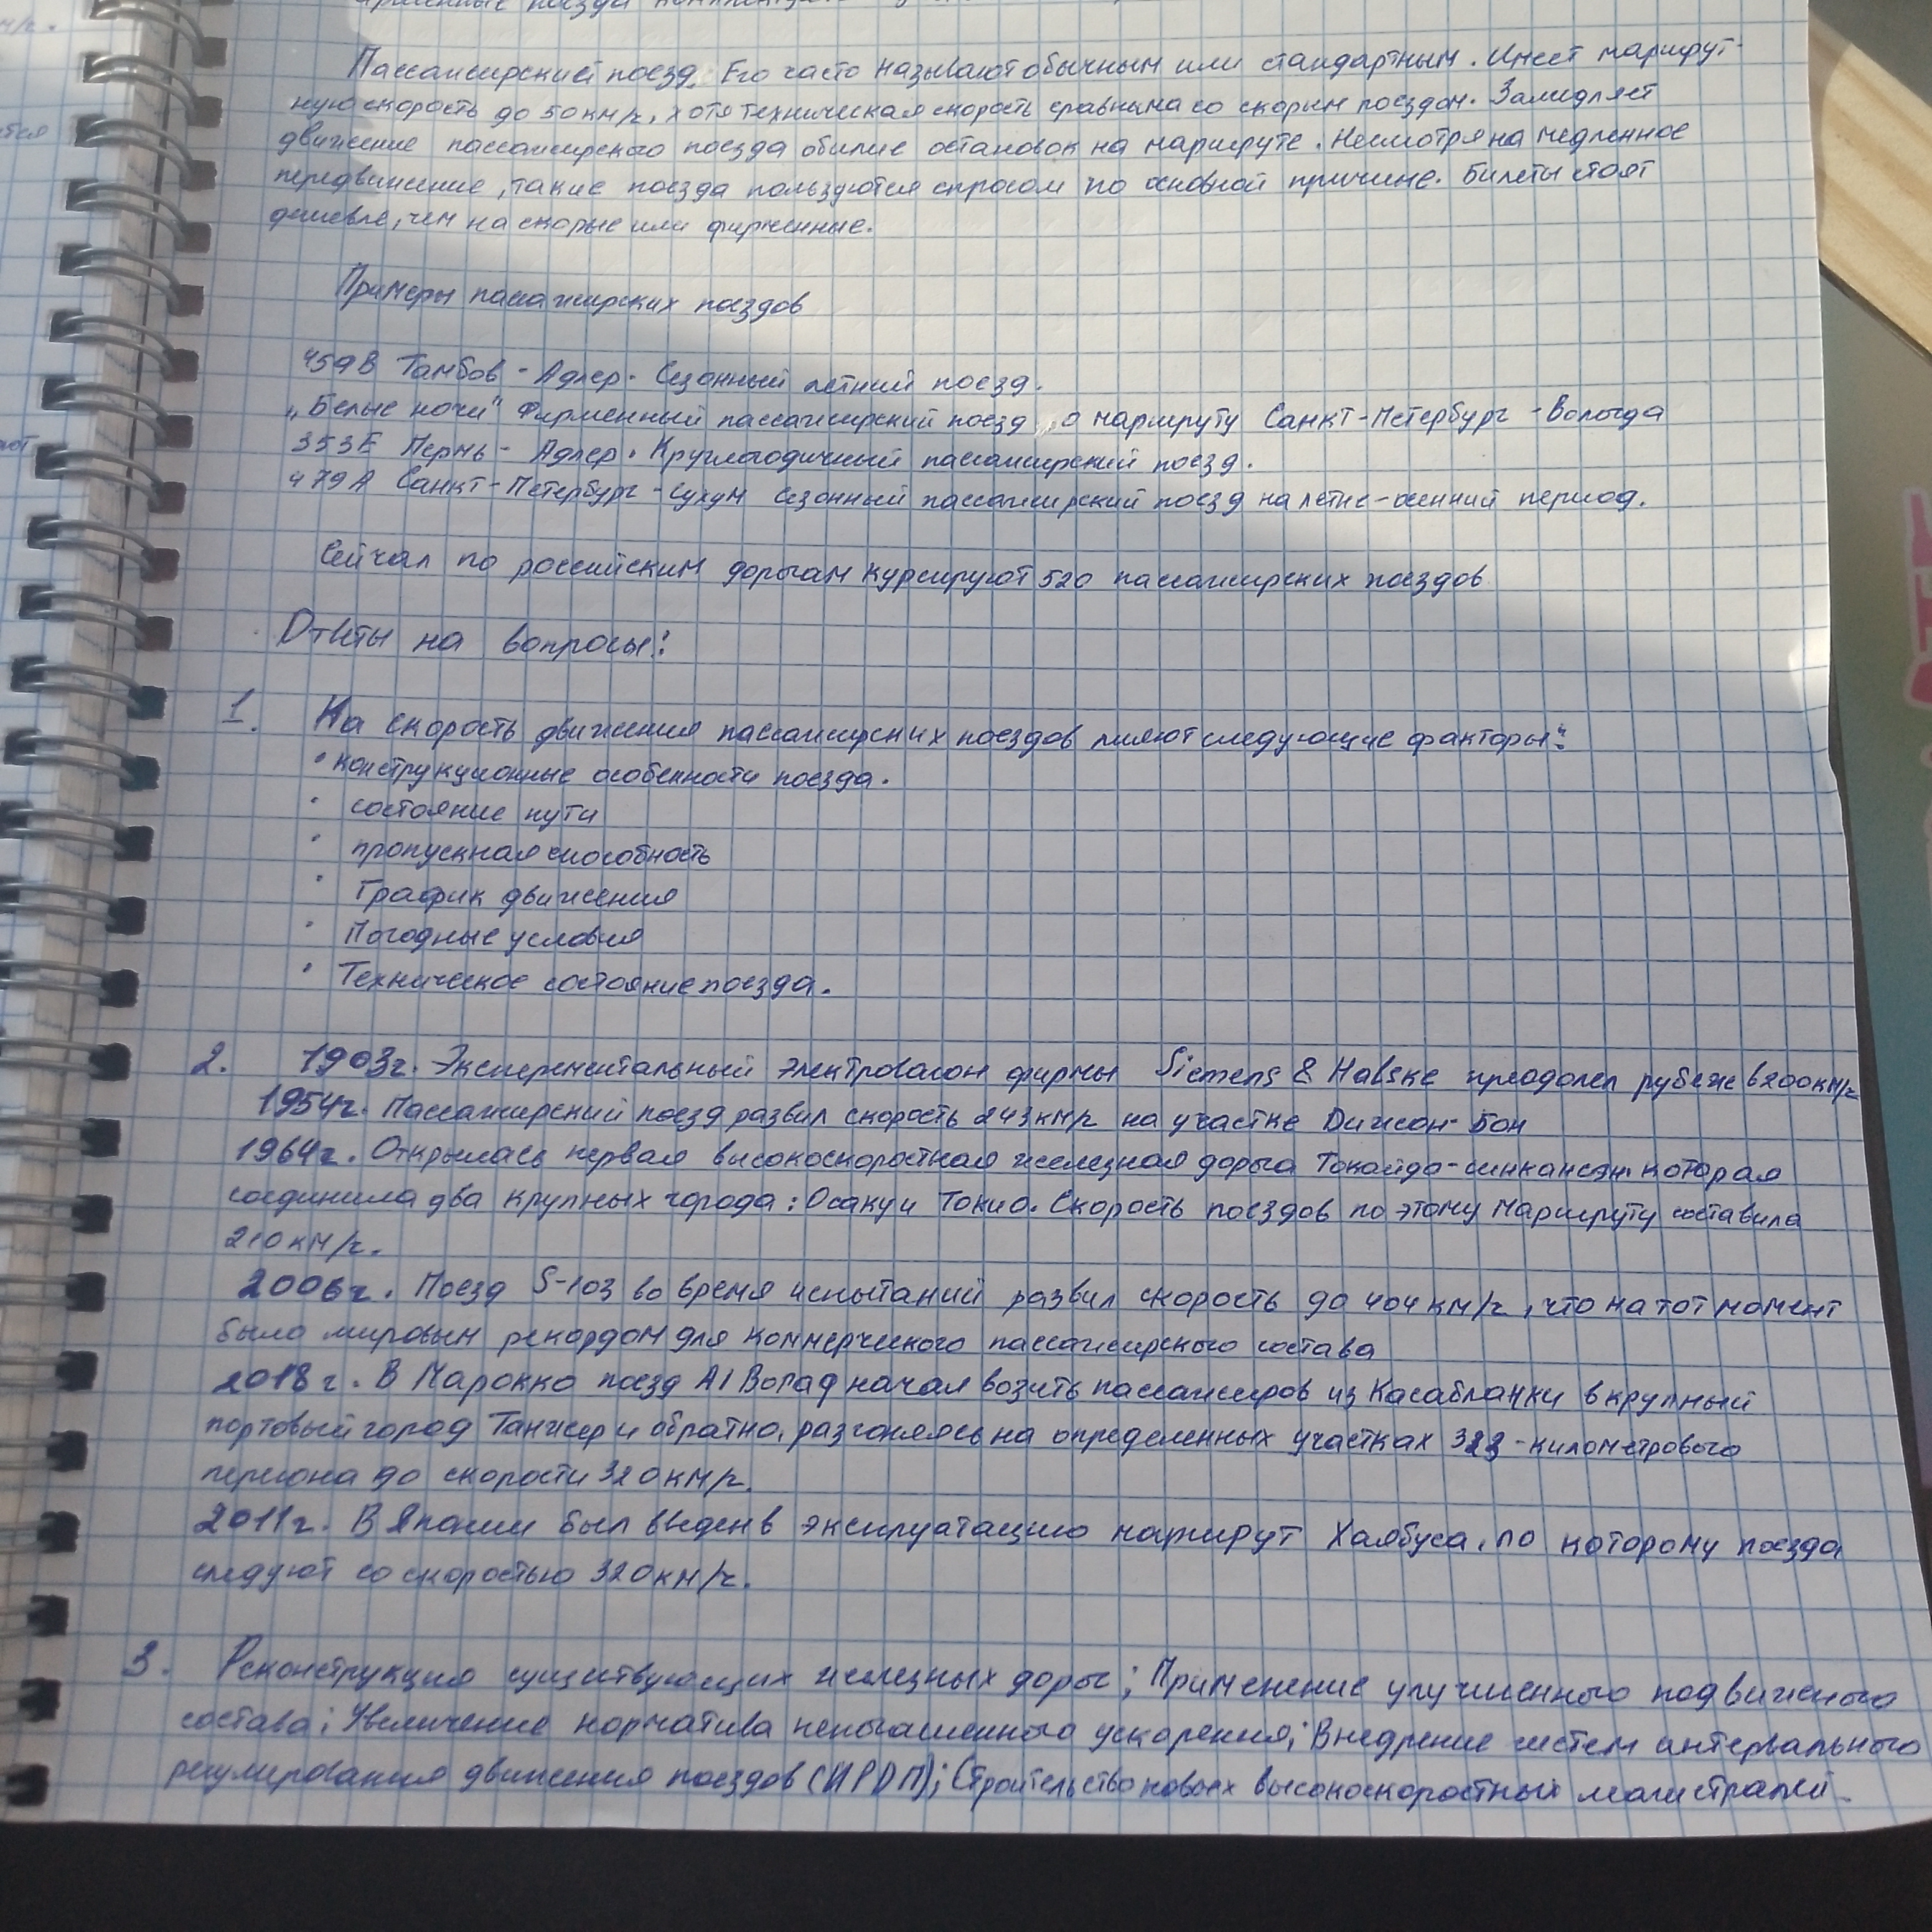 Пассажирский поезд. Его часто называют обычным или стандартным. Имеет маршрут-
ную скорость до 50 км/ч, хотя техническая скорость сравнима со скорым поездом. Замедляет
движение пассажирского поезда обилие остановок на маршруте. Несмотря на медленное
передвижение, такие поезда пользуются спросом по основной причине. Билеты стоят
дешевле, чем на скорые или фирменные.
Примеры пассажирских поездов
459В Тамбов - Адлер. Сезонный летний поезд.
„Белые ночи" Фирменный пассажирский поезд по маршруту Санкт-Петербург - Вологда
353Е Пермь - Адлер. Круглогодичный пассажирский поезд.
479А Санкт-Петербург - Сухум сезонный пассажирский поезд на летне-осенний период.
Сейчас по российским дорогам курсируют 520 пассажирских поездов
Ответы на вопросы:
1. На скорость движения пассажирских поездов влияют следующие факторы:
• конструкционные особенности поезда.
• состояние пути
• пропускная способность
• График движения
• Погодные условия
• Техническое состояние поезда.
2. 1903г. Эксперементальный электровагон фирмы Siemens & Halske преодолел рубеж в 200км/ч
1954г. Пассажирский поезд развил скорость 243км/ч на участке Дижон-Бон
1964г. Открылась первая высокоскоростная железная дорога Токайдо-синкансэн которая
соединила два крупных города: Осаку и Токио. Скорость поездов по этому маршруту составила
210 км/ч.
2006г. Поезд S-103 во время испытаний развил скорость до 404 км/ч, что на тот момент
было мировым рекордом для коммерческого пассажирского состава
2018г. В Марокко поезд Al Boraq начал возить пассажиров из Касабланки в крупный
портовый город Танжер и обратно, разгоняясь на определенных участках 323-километрового
перегона до скорости 320 км/ч.
2011г. В Японии был введен в эксплуатацию маршрут Хаябуса, по которому поезда
следуют со скоростью 320 км/ч.
3. Реконструкция существующих железных дорог; Применение улучшенного подвижного
состава; Увеличение норматива непогашенного ускорения; Внедрение систем интервального
регулирования движения поездов (ИРДП); Строительство новых высокоскоростных магистралей.